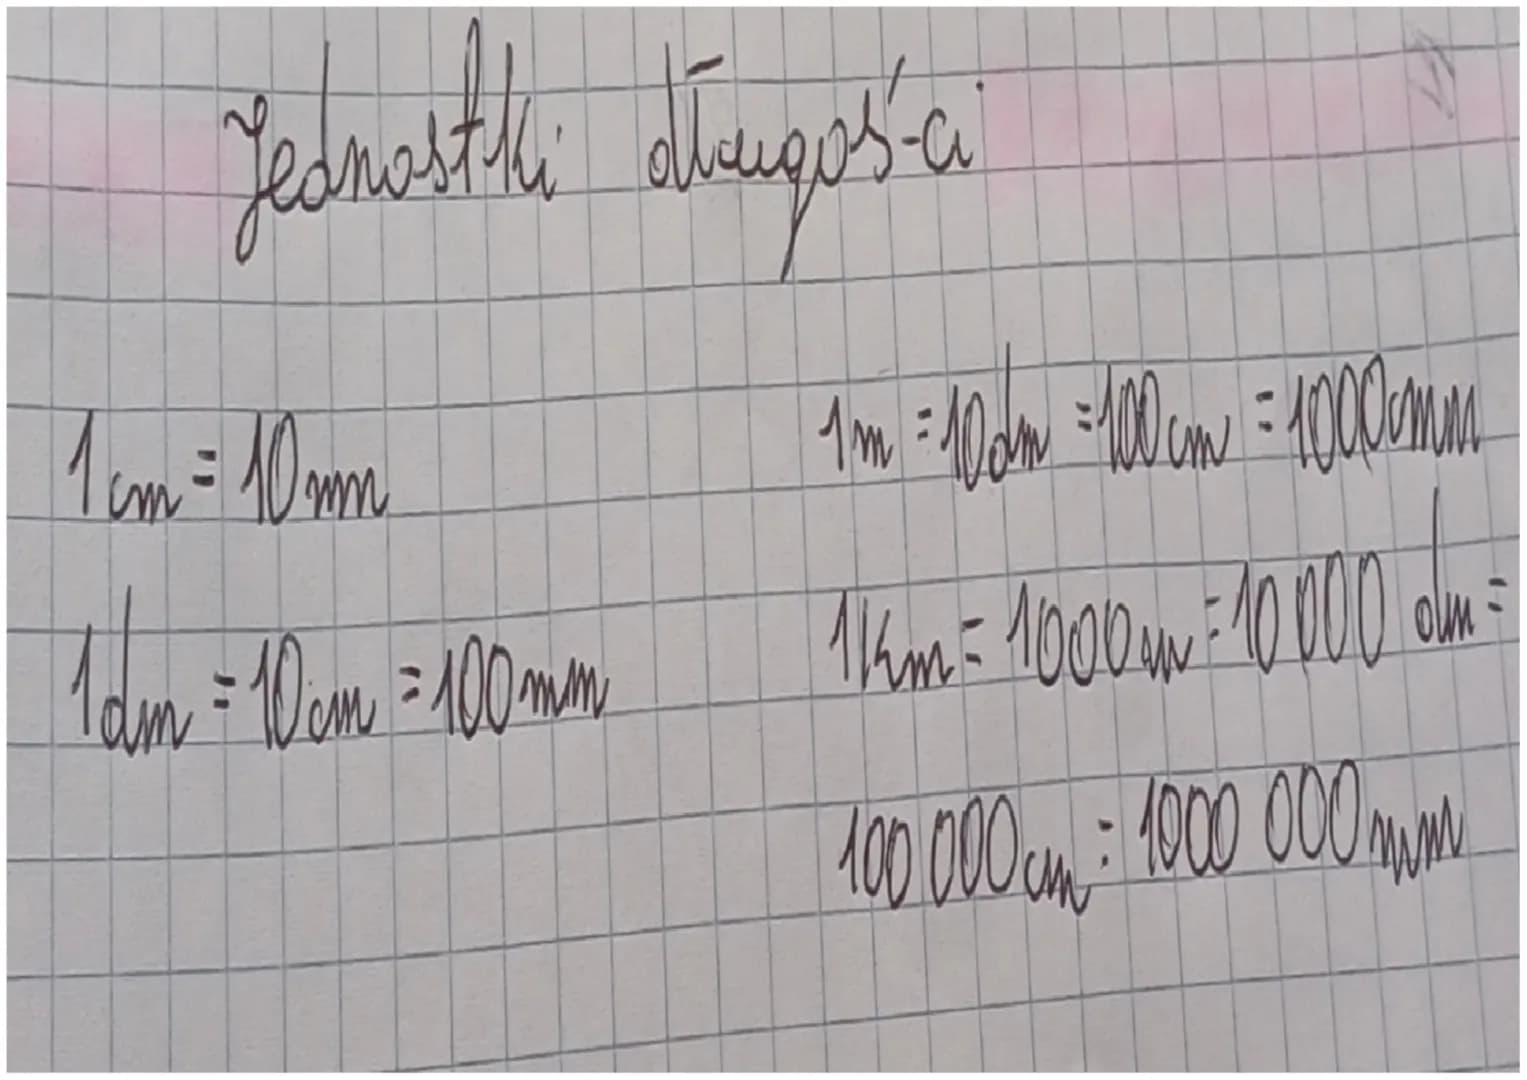 Jednostki długoś-ci
1cm = 10mm
1dm = 10cm = 100mm
1m = 10dm = 100cm = 1000mm
1km = 1000m = 10 000 dm =
100 000cm = 1000 000mm